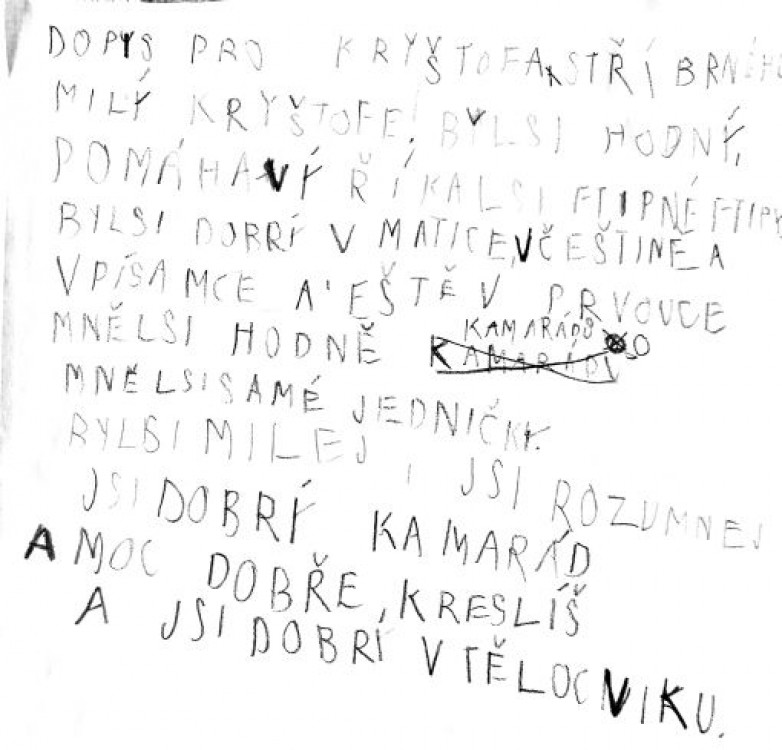 DOPYS PRO KRYŠTOFA STŘÍBRNÉHO
MILÝ KRYŠTOFE! BYLSI HODNÝ,
POMÁHAVÝ ŘÍKALSI FTIPNÉ FTIPY
BYLSI DOBRÍ V MATICE, V ČEŠTINĚ A
V PÍSAMCE A EŠTĚ V PRVOUCE
MNĚLSI HODNĚ KAMARÁDŮ
MNĚLSI SAMÉ JEDNIČKY.
BYLSI MILEJ I JSI ROZUMNEJ
JSI DOBRÍ KAMARÁD
A MOC DOBŘE, KRESLÍŠ
A JSI DOBRÍ V TĚLOCVIKU.